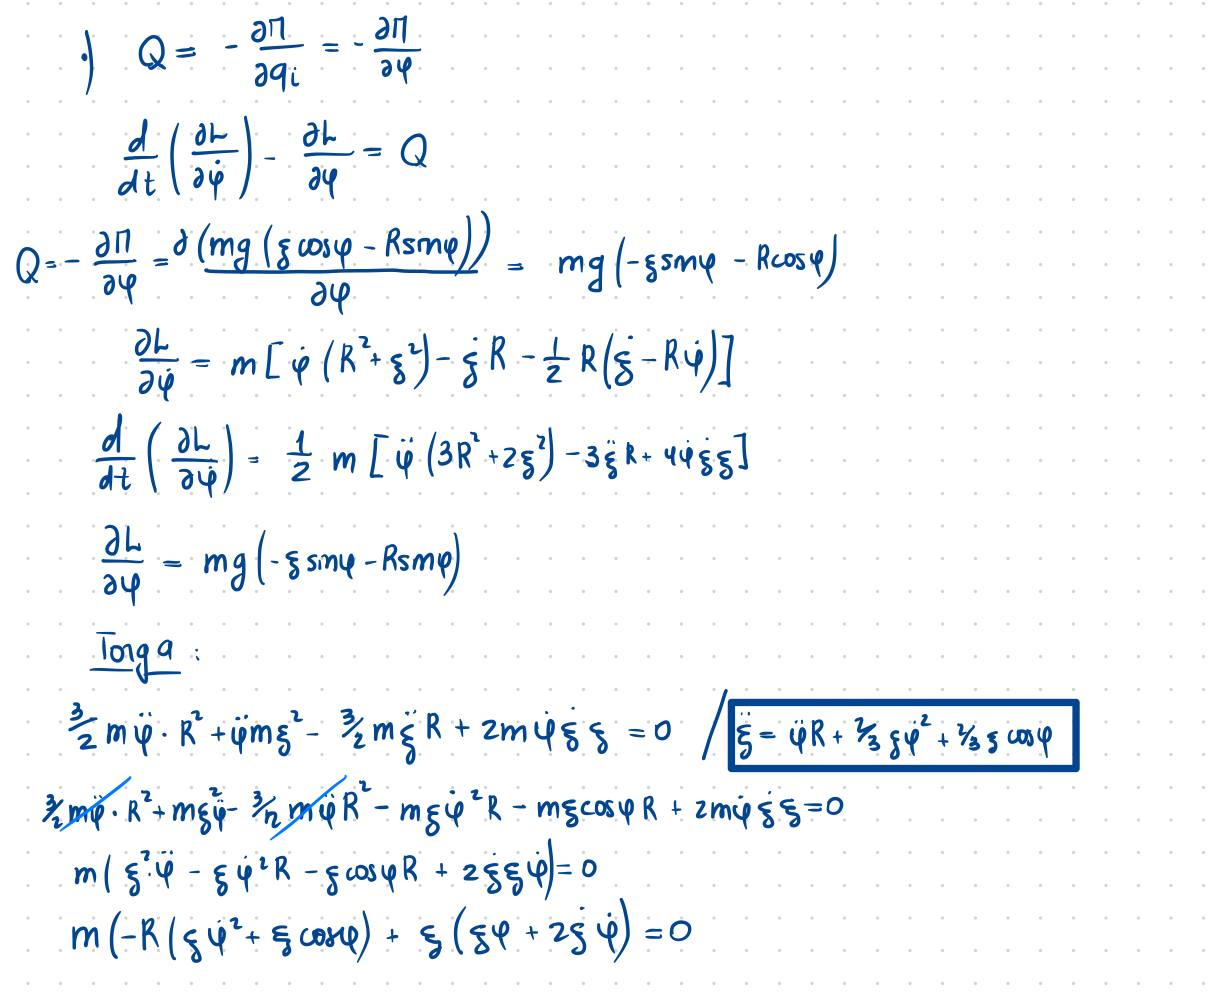 ·) Q = - ∂Π/∂qi = - ∂Π/∂φ
d/dt (∂L/∂φ̇) - ∂L/∂φ = Q
Q = - ∂Π/∂φ = ∂(mg(ξ cosφ - Rsinφ))/∂φ = mg(-ξsinφ - Rcosφ)
∂L/∂φ̇ = m[φ̇(R² + ξ²) - ξ̇R - 1/2 R(ξ̇ - Rφ̇)]
d/dt (∂L/∂φ̇) = 1/2 m [φ̈(3R² + 2ξ²) - 3ξ̈R + 4φ̇ξ̇ξ]
∂L/∂φ = mg(-ξsinφ - Rsinφ)
Torga :
3/2 mφ̈ · R² + φ̈mξ² - 3/2 mξ̈R + 2mφ̇ξ̇ξ = 0 / ξ̈ = φ̈R + 2/3 ξφ̇² + 2/3 ξ cosφ
3/2 mφ̈ · R² + mξ²φ̈ - 3/2 mφ̈R² - mξφ̇²R - mξcosφR + 2mφ̇ξ̇ξ = 0
m(ξ²·φ̈ - ξφ̇²R - ξcosφR + 2ξ̇ξφ̇) = 0
m(-R(ξφ̇² + ξ cosφ) + ξ(ξφ + 2ξ̇φ̇) = 0